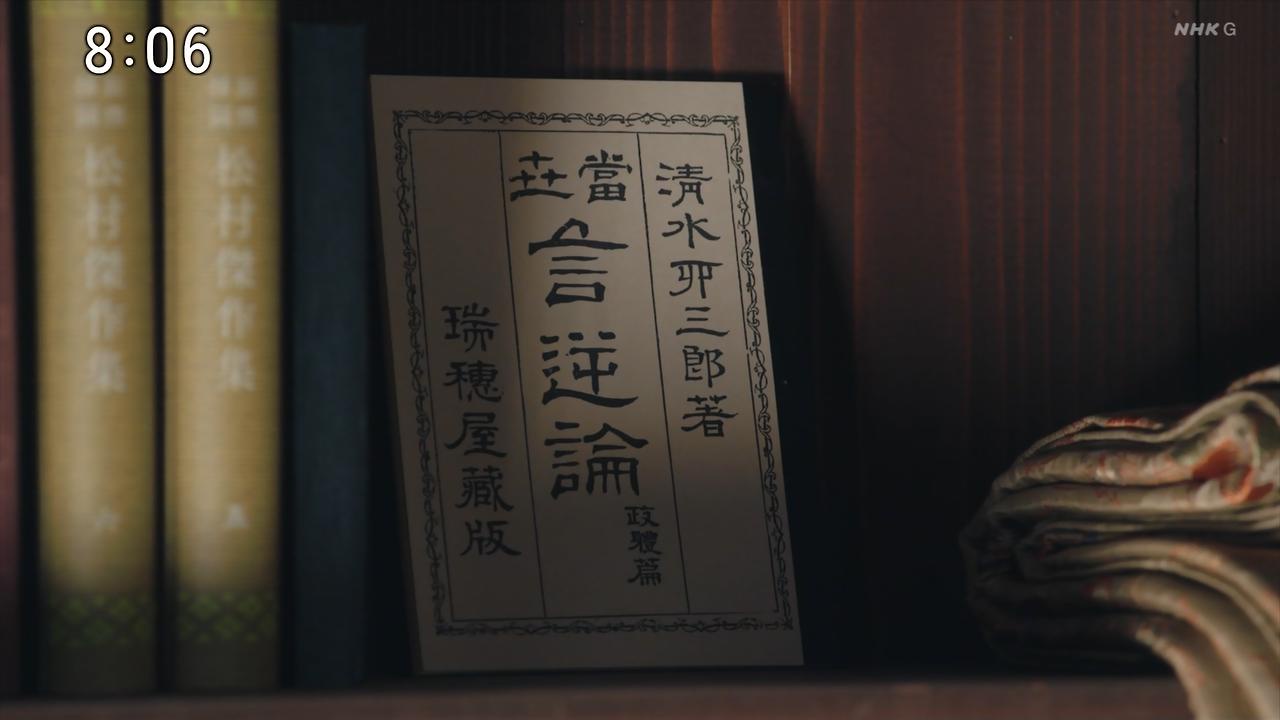 8:06
NHK G
清水卯三郎著
當世
言逆論
政體篇
瑞穗屋藏版
松村傑作集
松村傑作集